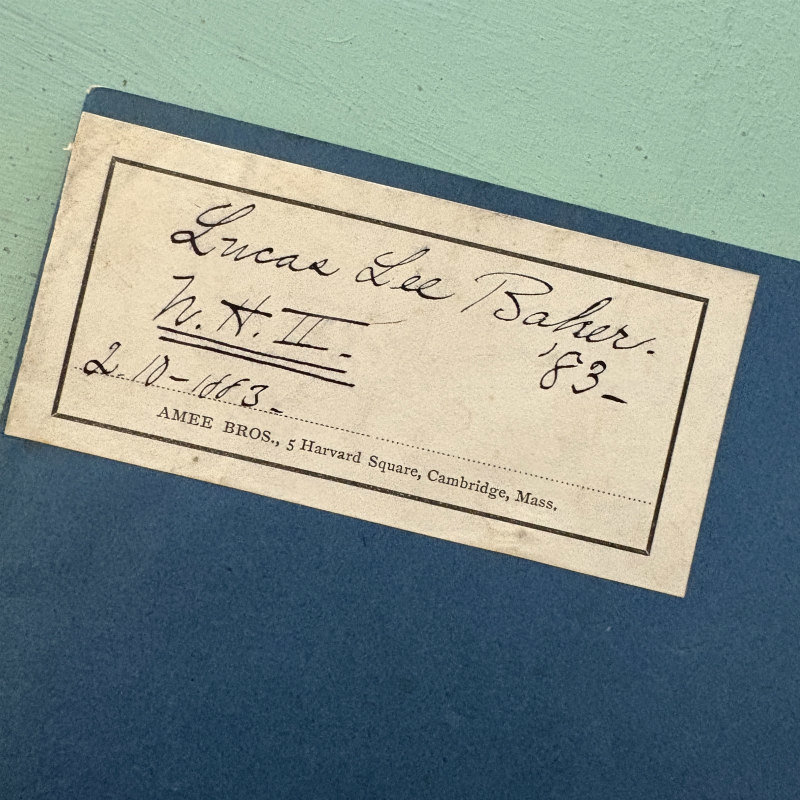 Lucas Lee Baker.
N. H. II. '83-
2-10-1883-
AMEE BROS., 5 Harvard Square, Cambridge, Mass.